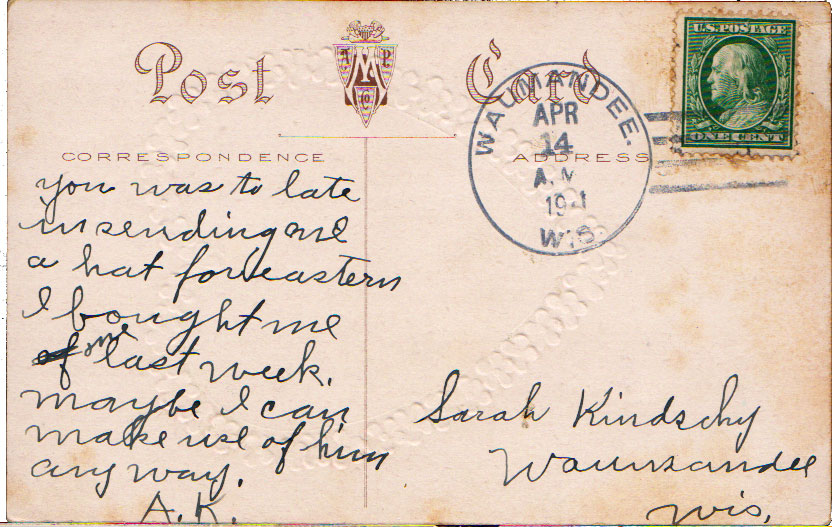 Post Card
A M P
Co
U.S. POSTAGE
ONE CENT
WAUMANDEE.
APR
14
A.M
191
WIS.
CORRESPONDENCE
ADDRESS
you was to late
in sending me
a hat for eastern
I bought me
one last week.
maybe I can
make use of him
any way.
A.K.
Sarah Kindschy
Waumandee
Wis.